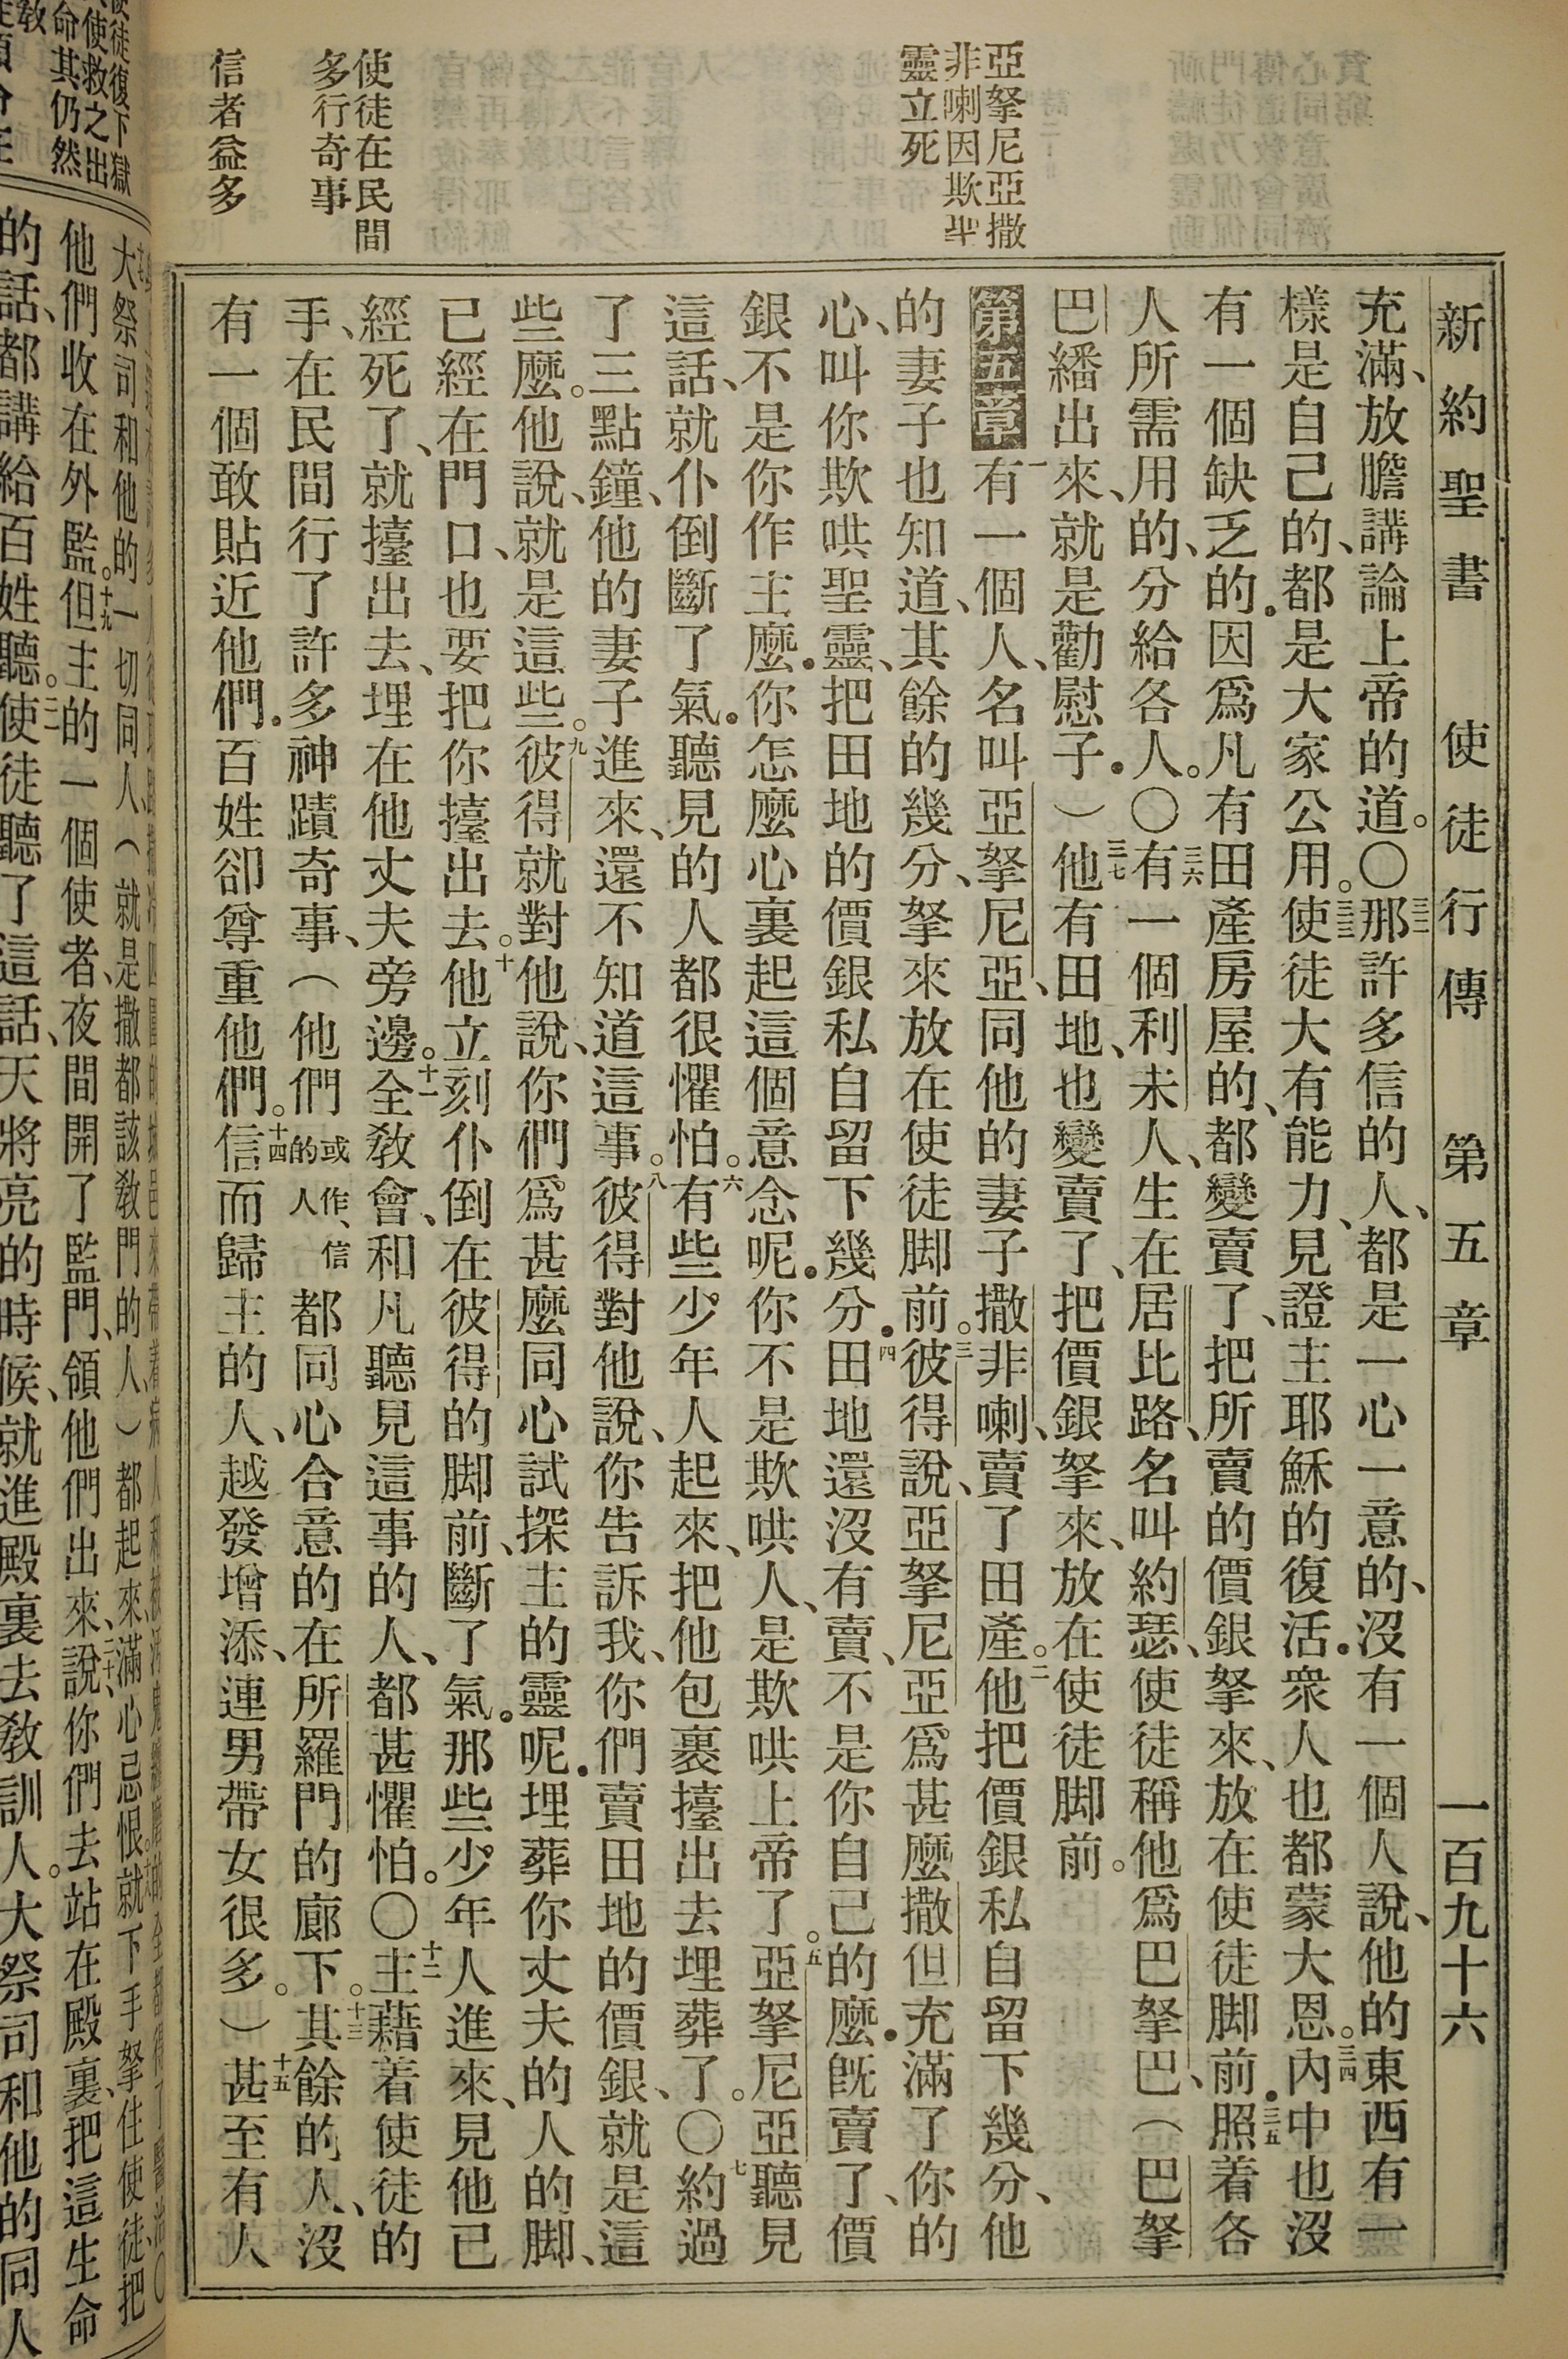 新約聖書 使徒行傳 第五章 一百九十六
亞拏尼亞撒
非喇因欺聖
靈立死
使徒在民間
多行奇事
信者益多
充滿、放膽講論上帝的道。〇三二那許多信的人、都是一心一意的、沒有一個人說、他的東西有一
樣是自己的、都是大家公用。三三使徒大有能力、見證主耶穌的復活．衆人也都蒙大恩。三四內中也沒
有一個缺乏的．因爲凡有田產房屋的、都變賣了、把所賣的價銀拏來、放在使徒脚前．三五照着各
人所需用的、分給各人。〇三六有一個利未人、生在居比路、名叫約瑟、使徒稱他爲巴拏巴、（巴拏
巴繙出來、就是勸慰子．）三七他有田地、也變賣了、把價銀拏來、放在使徒脚前。
第五章 一有一個人、名叫亞拏尼亞、同他的妻子撒非喇、賣了田產。二他把價銀私自留下幾分、他
的妻子也知道、其餘的幾分、拏來放在使徒脚前。三彼得說、亞拏尼亞爲甚麼撒但充滿了你的
心、叫你欺哄聖靈、把田地的價銀私自留下幾分．四田地還沒有賣、不是你自己的麼．旣賣了、價
銀不是你作主麼．你怎麼心裏起這個意念呢．你不是欺哄人、是欺哄上帝了。五亞拏尼亞聽見
這話、就仆倒斷了氣．聽見的人都很懼怕。六有些少年人起來、把他包裹擡出去埋葬了。〇七約過
了三點鐘、他的妻子進來、還不知道這事。八彼得對他說、你告訴我、你們賣田地的價銀、就是這
些麼。他說、就是這些。九彼得就對他說、你們爲甚麼同心試探主的靈呢．埋葬你丈夫的人的脚、
已經在門口、也要把你擡出去。十他立刻仆倒在彼得的脚前、斷了氣．那些少年人進來、見他已
經死了、就擡出去、埋在他丈夫旁邊。十一全敎會、和凡聽見這事的人、都甚懼怕。〇十二主藉着使徒的
手、在民間行了許多神蹟奇事、（他們或作、信的人都同心合意的在所羅門的廊下。十三其餘的人、沒
有一個敢貼近他們．百姓卻尊重他們。十四信而歸主的人、越發增添、連男帶女很多。）十五甚至有人
大祭司和他的一切同人、（就是撒都該敎門的人、）都起來、滿心忌恨。就下手拏住使徒、把
他們收在外監。十九但主的一個使者、夜間開了監門、領他們出來、說、二十你們去站在殿裏、把這生命
的話、都講給百姓聽。二一使徒聽了這話、天將亮的時候、就進殿裏去敎訓人。大祭司和他的同人